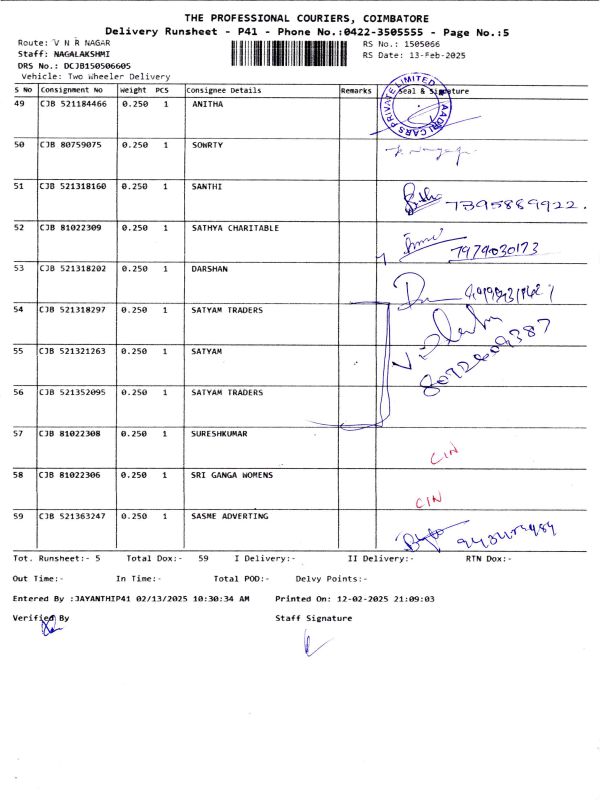 THE PROFESSIONAL COURIERS, COIMBATORE
Delivery Runsheet - P41 - Phone No.:0422-3505555 - Page No.:5
Route: V N R NAGAR RS No.: 1505066
Staff: NAGALAKSHMI RS Date: 13-Feb-2025
DRS No.: DCJB150506605
Vehicle: Two Wheeler Delivery
S No Consignment No Weight PCS Consignee Details Remarks Seal & Signature
49 CJB 521184466 0.250 1 ANITHA AADRI CARS PRIVATE LIMITED
50 CJB 80759075 0.250 1 SOWRTY
51 CJB 521318160 0.250 1 SANTHI 7395889922.
52 CJB 81022309 0.250 1 SATHYA CHARITABLE 7979030173
53 CJB 521318202 0.250 1 DARSHAN
54 CJB 521318297 0.250 1 SATYAM TRADERS
55 CJB 521321263 0.250 1 SATYAM
56 CJB 521352095 0.250 1 SATYAM TRADERS
57 CJB 81022308 0.250 1 SURESHKUMAR CIN
58 CJB 81022306 0.250 1 SRI GANGA WOMENS CIN
59 CJB 521363247 0.250 1 SASME ADVERTING
Tot. Runsheet:- 5 Total Dox:- 59 I Delivery:- II Delivery:- RTN Dox:-
Out Time:- In Time:- Total POD:- Delvy Points:-
Entered By :JAYANTHIP41 02/13/2025 10:30:34 AM Printed On: 12-02-2025 21:09:03
Verified By Staff Signature